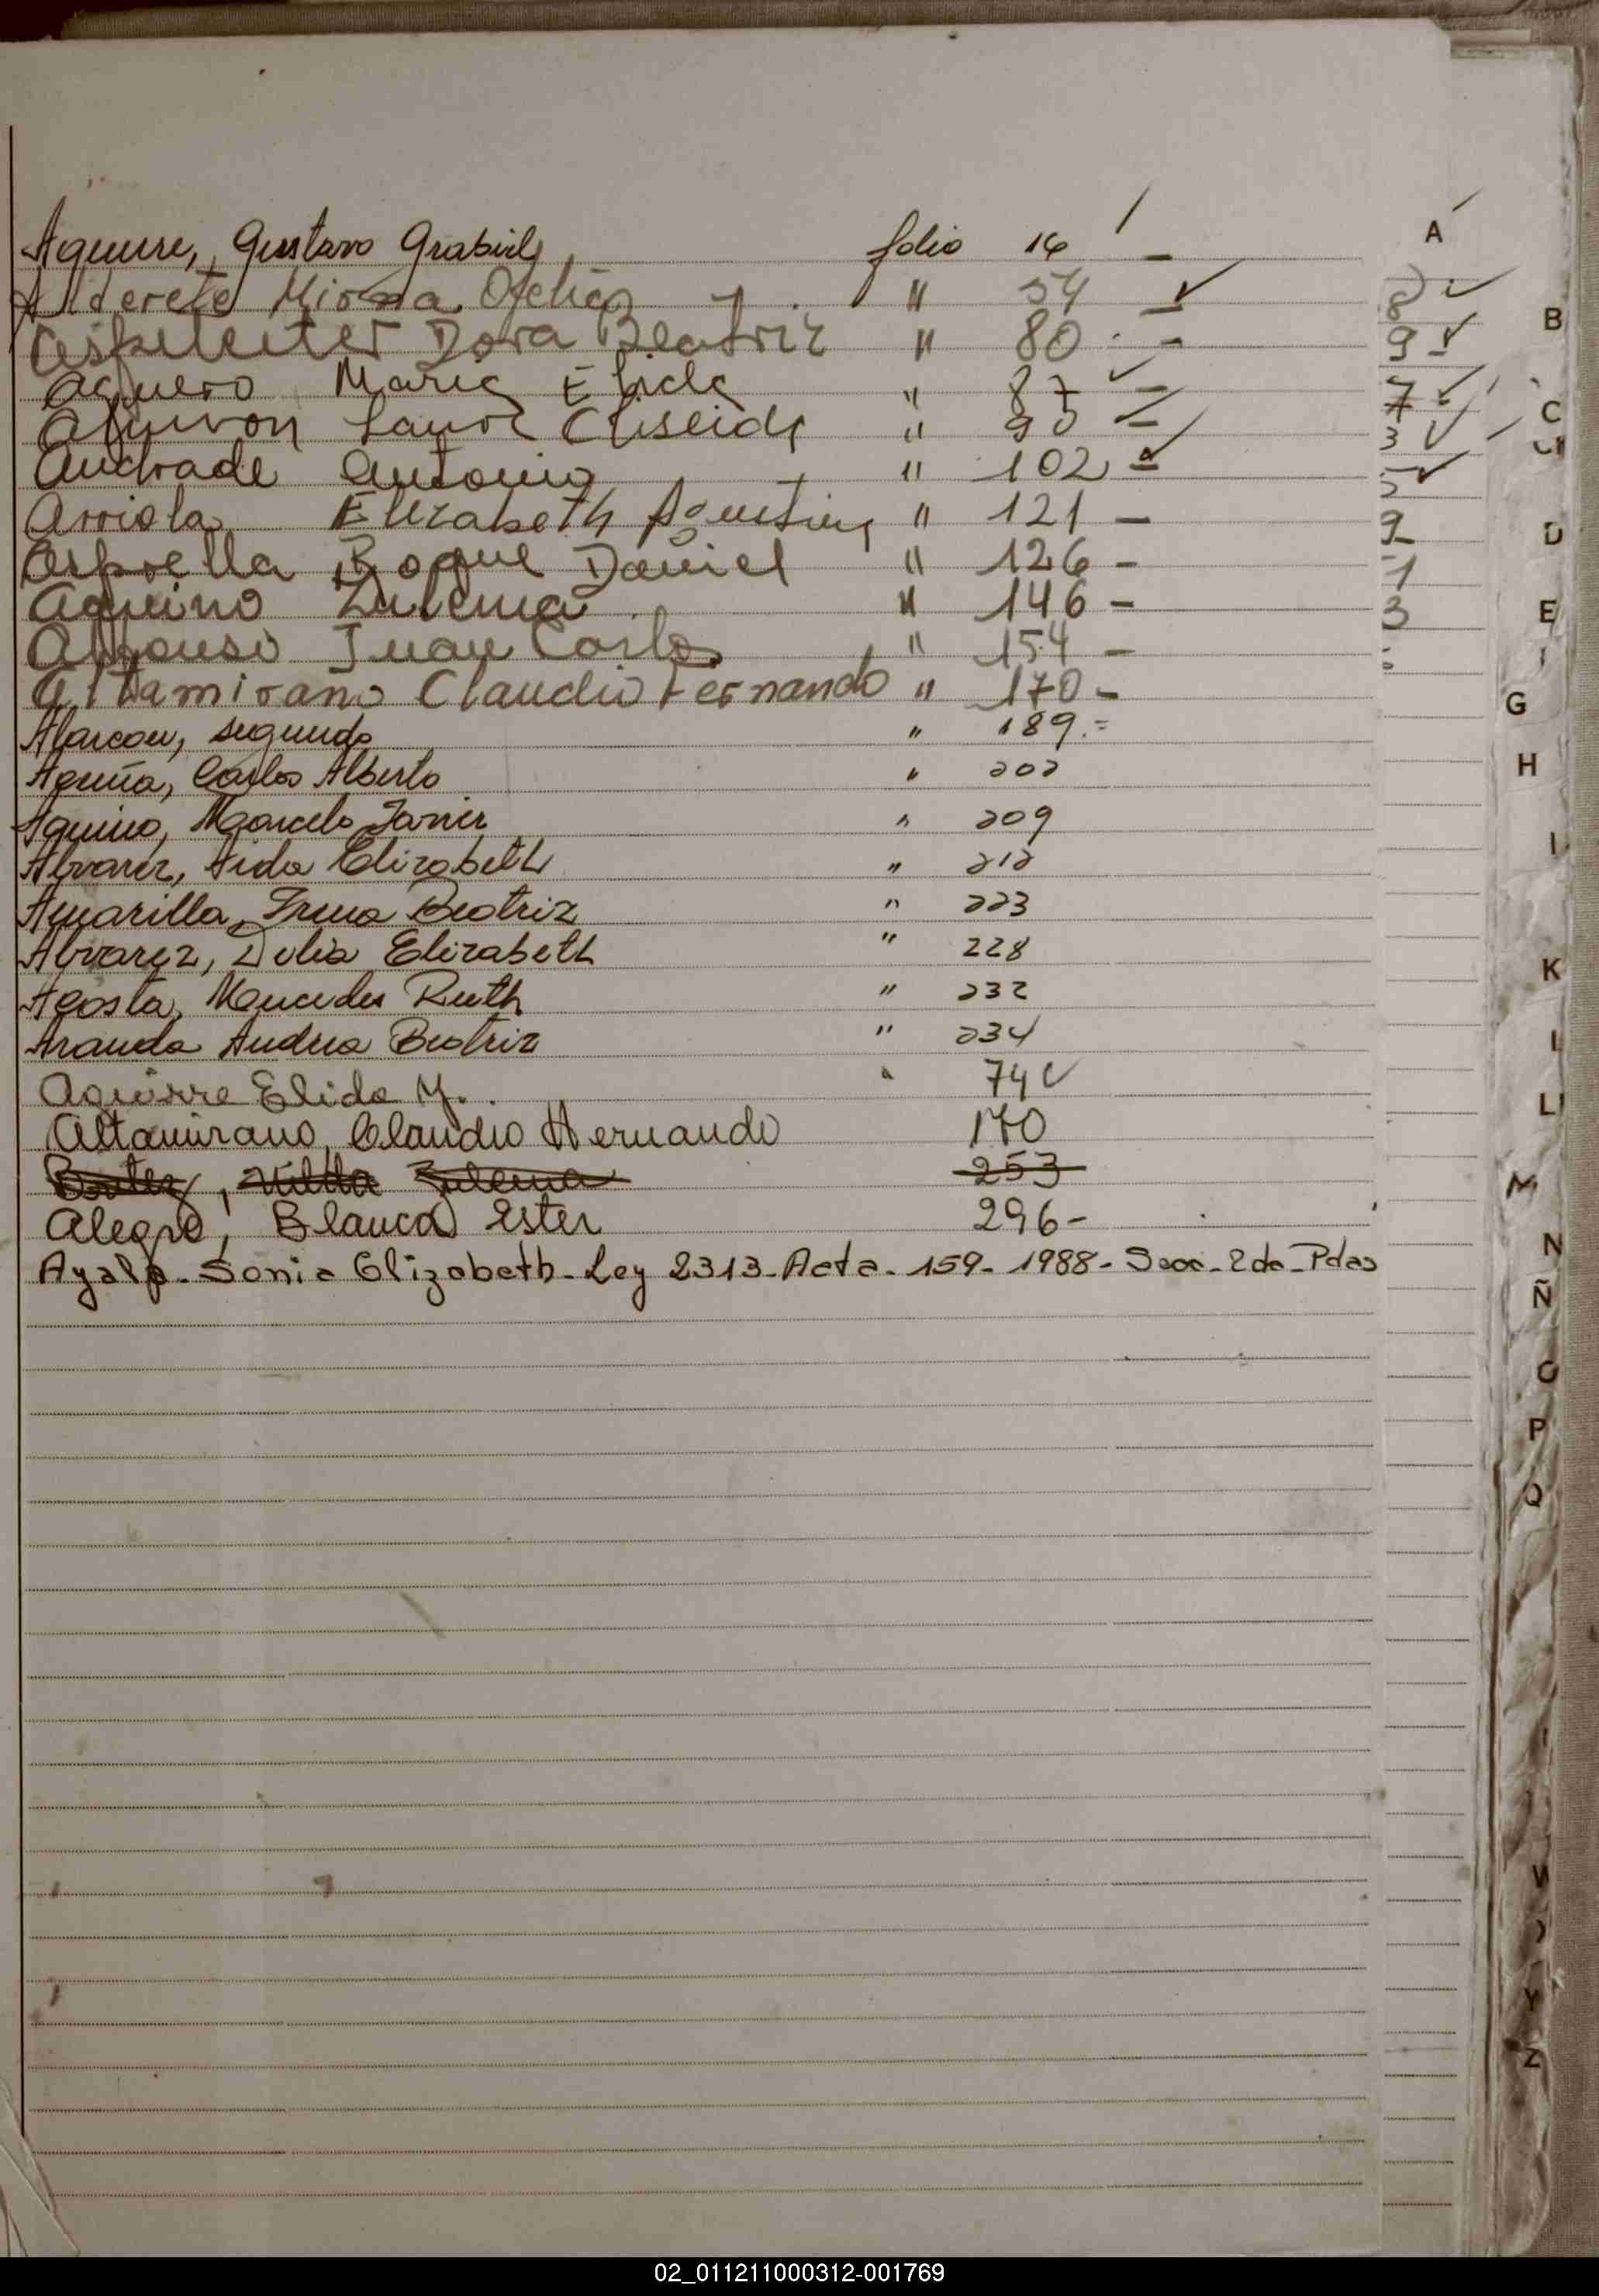 A
Aguirre, Gustavo Grabiel folio 16 -
Alderete Mirna Ofelia " 54 -
Aspeleiter Dora Beatriz " 80 -
Aguero Maria Elida " 87 -
Laura " 90 -
Andrade Antonio " 102 -
Arriola Elizabeth Agustina " 121 -
Asprella Roque Daniel " 126 -
Aquino Zulema " 146 -
Alfonso Juan Carlos " 154 -
Altamirano Claudio Fernando " 170 -
Alarcon, Segundo " 189.=
Acuña, Carlos Alberto " 202
Aquino, Marcelo Javier " 209
Alvarez, Aida Elizabeth " 212
Amarilla, Irma Beatriz " 223
Alvarez, Delia Elizabeth " 228
Acosta, Mercedes Ruth " 232
Aranda Andrea Beatriz " 234
Aguirre Elida M. " 74
Altamirano, Claudio Hernando 170
, Zulema 253
Alegre, Blanca Ester 296-
Ayala - Sonia Elizabeth - Ley 2313 - Acta - 159 - 1988 - Secc - 2da - Pdas
8
9
7
3
5
9
1
3
B
C
D
E
G
H
I
K
L
LL
M
N
Ñ
O
P
Q
W
Y
Z
02_011211000312-001769